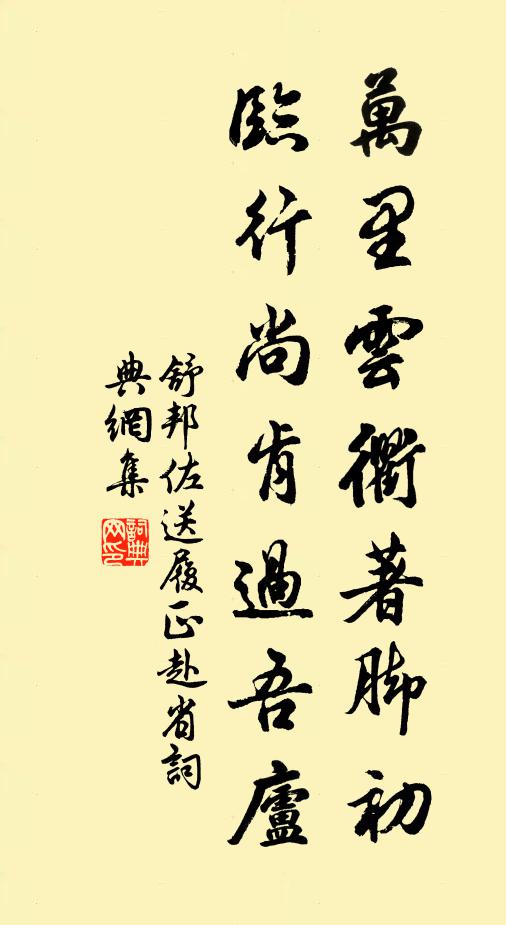 萬里雲衢著脚初
臨行尚肯過吾廬
舒邦佐送履正赴省詞
典網集
詞典
网印